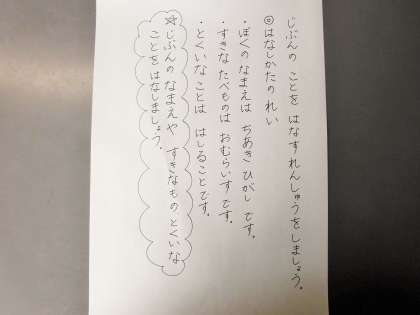 じぶんの ことを はなすれんしゅうをしましょう。
◎はなしかたの れい
・ぼくの なまえは ちあき ひがし です。
・すきな たべものは おむらいすです。
・とくいな ことは はしることです。
☆じぶんの なまえや すきなもの とくいな
ことを はなしましょう。